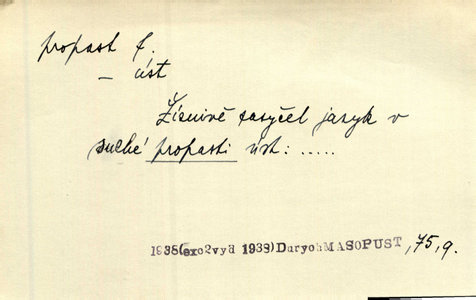 propast f.
— úst
Žíznivě zasyčel jazyk v
suché propasti úst: .....
1938(exc2vyd 1938)DurychMASOPUST ,75,9.